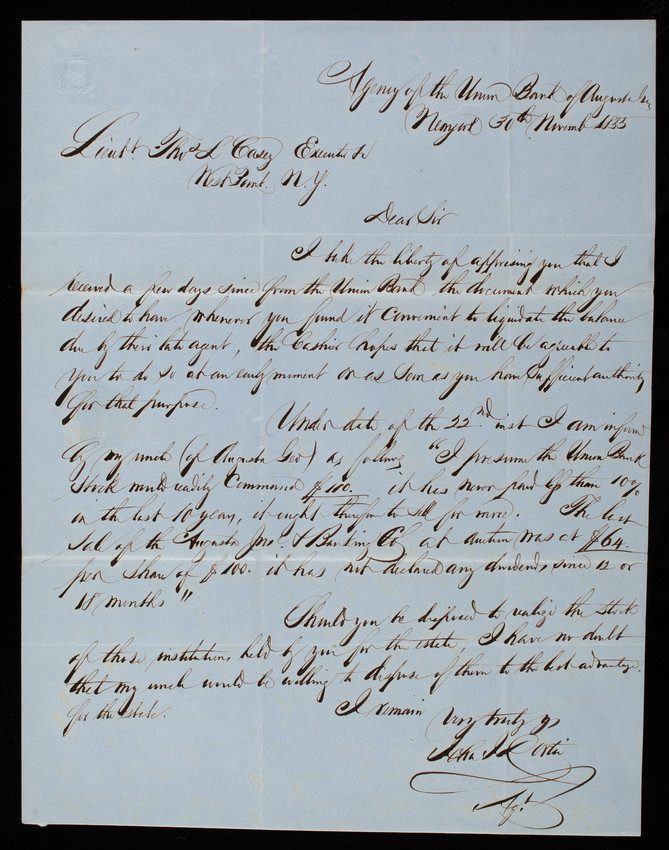 Agency of the Union Bank of Augusta Geo
New york 30th Novemb 1855
Lieut. Thos L Casey Executor &c
West Point. N.Y.
Dear Sir
I take the liberty of apprising you that I
received a few days since from the Union Bank the document which you
desired to have whenever you found it convenient to liquidate the balance
due by their late agent, the Cashier hopes that it will be agreeable to
you to do so at an early moment or as soon as you have sufficient authority
for that purpose.
Under date of the 22nd inst I am informed
by my uncle (of Augusta Geo) as follows "I presume the Union Bank
Stock would readily Command $110. it has never paid less than 10%
in the last 10 years, it ought therefor to sell for more. The last
Sale of the Augusta Ins. & Banking Co at auction was at $64.
per share of $100. it has not declared any dividends since 12 or
18 months"
Should you be disposed to realize the stock
of those institutions held by you for the estate, I have no doubt
that my uncle would be willing to dispose of them to the best advantage
for the estate.
I remain
Very truly yrs
Agt